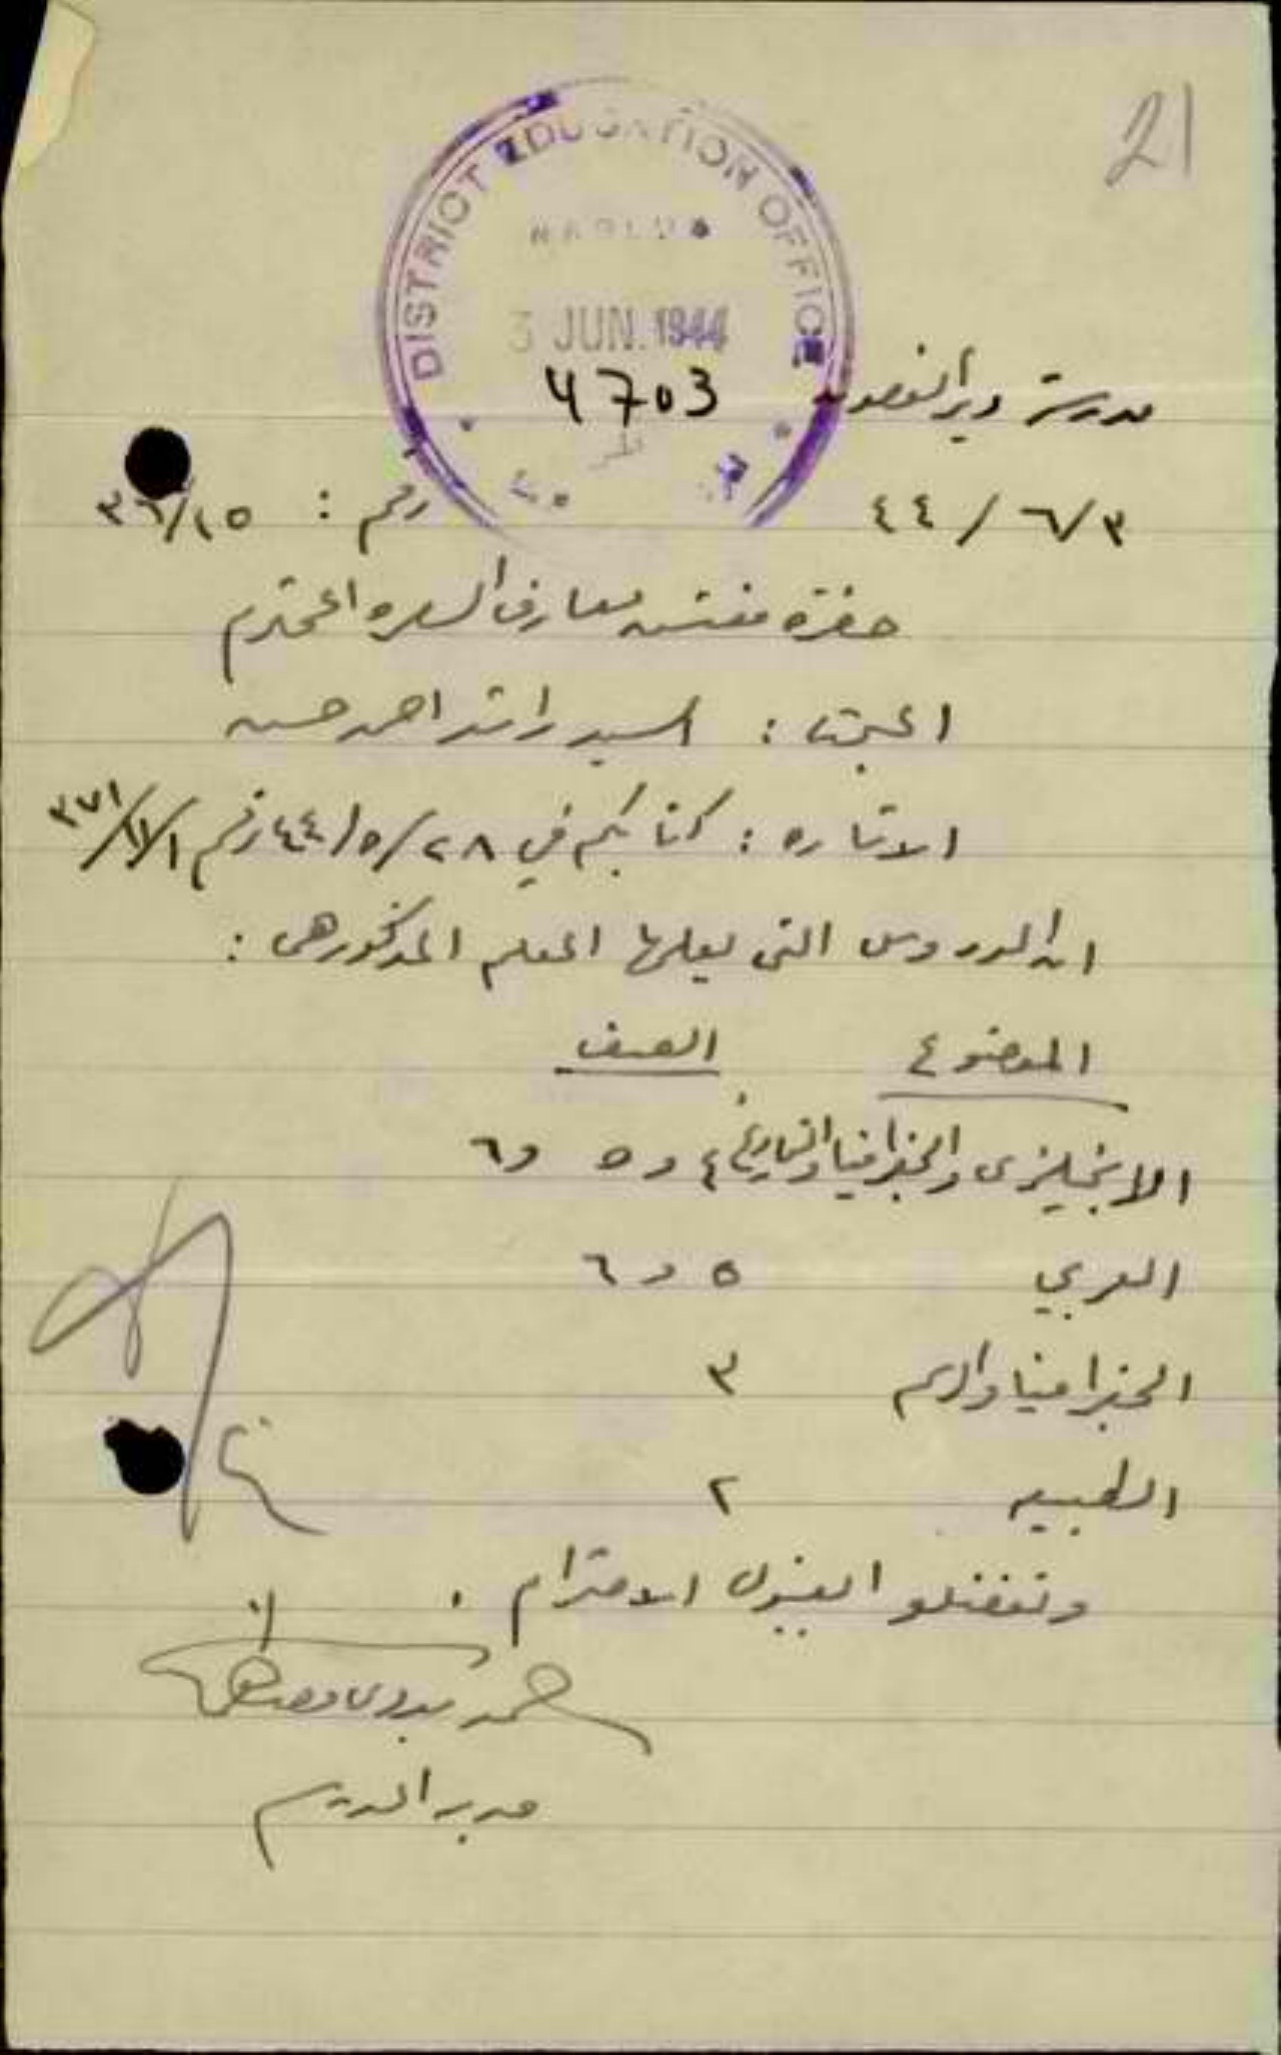 21
DISTRICT EDUCATION OFFICE
NABLUS
3 JUN. 1944
4703
مدرسة دير الغصون
٤٤/٦/٣
رقم : ٣٦/١٥
حضرة مفتش معارف اللواء المحترم
المبحث : السيد راشد احمد حسن
الاشاره : كتابكم في ٤٤/٥/٢٨ رقم ٣٧١/١١/١
ان الدروس التى يعلمها المعلم المذكور هى :
الموضوع الصف
الانجليزى والجغرافيا والتاريخ ٤ و ٥ و ٦
العربي ٥ و ٦
الجغرافيا والرسم ٣
الطبيعه ٢
وتفضلو بقبول الاحترام .
مدير المدرسة